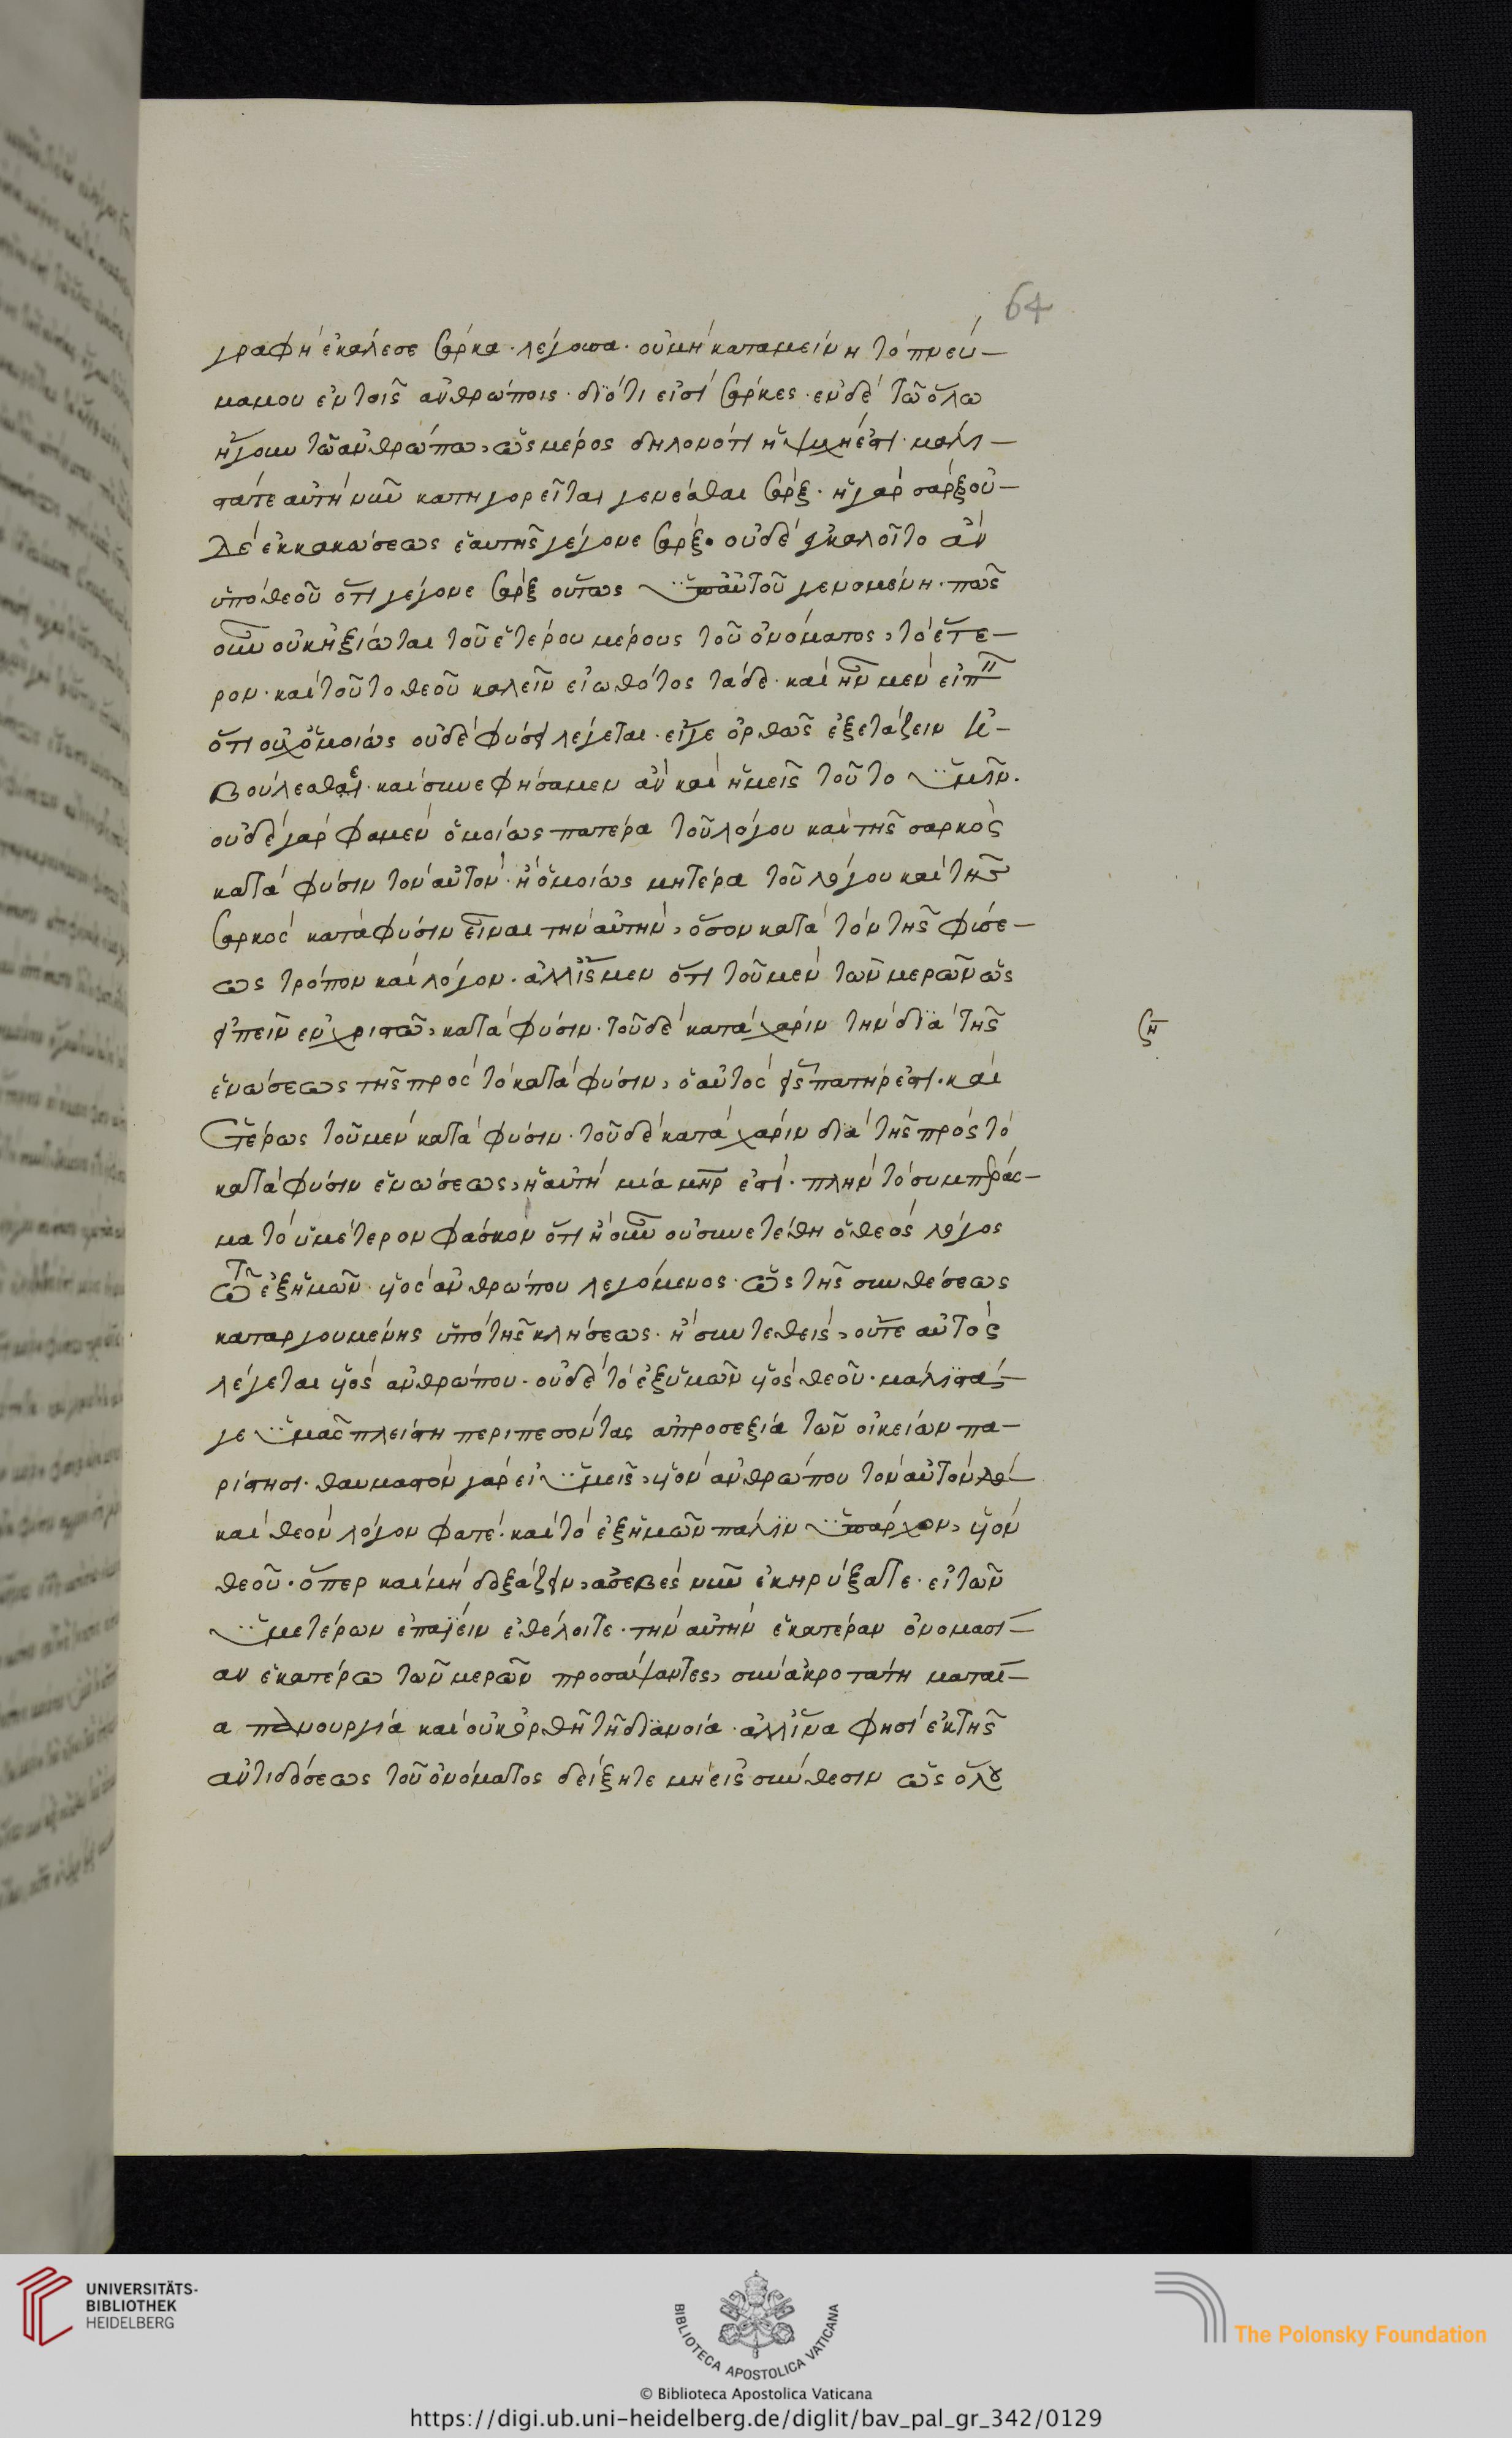 64
γραφὴ ἐκάλεσε σάρκα· λέγουσα· οὐ μὴ καταμείνῃ τὸ πνεῦ-
μα μου ἐν τοῖς ἀνθρώποις· διότι εἰσὶ σάρκες· ἐν δὲ τῶ ὅλω
ἤγουν τῶ ἀνθρώπω, ὡς μέρος δηλονότι ἡ ψυχή ἐστι· μάλι-
στά τε αὐτὴ νῦν κατηγορεῖται γενέσθαι σάρξ· ἡ γὰρ σὰρξ οὐ-
δὲ ἐκ κακώσεως ἑαυτῆς γέγονε σάρξ· οὐδὲ ἐκαλοῖτο ἂν
ὑπὸ θεοῦ ὅτι γέγονε σὰρξ οὕτως ὑπ' αὐτοῦ γενομένη· πῶς
οὖν οὐκ ἠξίωται τοῦ ἑτέρου μέρους τοῦ ὀνόματος, τὸ ἕτε-
ρον· καὶ τοῦτο θεοῦ καλεῖν εἰωθότος τάδε· καὶ ἦν μὲν εἰπ
ὅτι οὐχ ὁμοίως οὐδὲ φύσει λέγεται· εἴγε ὀρθῶς ἐξετάζειν ἐ-
βούλεσθε· καὶ συνεφήσαμεν ἂν καὶ ἡμεῖς τοῦτο ὑμῖν·
οὐδὲ γάρ φαμεν ὁμοίως πατέρα τοῦ λόγου καὶ τῆς σαρκὸς
κατὰ φύσιν τὸν αὐτόν· ἢ ὁμοίως μητέρα τοῦ λόγου καὶ τῆς
σαρκὸς κατὰ φύσιν εἶναι τὴν αὐτήν, ὅσον κατὰ τὸν τῆς φύσε-
ως τρόπον καὶ λόγον· ἀλλ' ἴσμεν ὅτι τοῦ μὲν τῶν μερῶν ὡς
εἰπεῖν ἐν χριστῶ, κατὰ φύσιν· τοῦ δὲ κατὰ χάριν τὴν διὰ τῆς
ἑνώσεως τῆς πρὸς τὸ κατὰ φύσιν, ὁ αὐτὸς εἷς πατήρ ἐστι· καὶ
ἑτέρως τοῦ μὲν κατὰ φύσιν· τοῦ δὲ κατὰ χάριν διὰ τῆς πρὸς τὸ
κατὰ φύσιν ἑνώσεως, ἡ αὐτὴ μία μηρ ἐστί· πλὴν τὸ συμπέρασ-
μα τὸ ὑμέτερον φάσκον ὅτι ἢ οὖν οὐ συνετέθη ὁ θεὸς λόγος
τῶ ἐξ ἡμῶν· υἱὸς ἀνθρώπου λεγόμενος· ὡς τῆς συνθέσεως
καταργουμένης ὑπὸ τῆς κλήσεως· ἢ συντεθείς, οὔτε αὐτὸς
λέγεται υἱὸς ἀνθρώπου· οὐδὲ τὸ ἐξ ὑμῶν υἱὸς θεοῦ· μάλιστά
γε ὑμᾶς πλείστη περιπεσόντας ἀπροσεξία τῶν οἰκείων πα-
ρίστησι· θαυμαστὸν γὰρ εἰ ὑμεῖς, υἱὸν ἀνθρώπου τὸν αὐτὸν
καὶ θεὸν λόγον φατέ· καὶ τὸ ἐξ ἡμῶν πάλιν ὑπάρχον, υἱὸν
θεοῦ· ὅπερ καὶ μὴ δοξάζειν, ἀσεβὲς νῦν ἐκηρύξατε· εἰ τῶν
ὑμετέρων ἐπαΐειν ἐθέλοιτε· τὴν αὐτὴν ἑκατέραν ὀνομασί-
αν ἑκατέρω τῶν μερῶν προσάψαντες, σὺν ἀκροτάτη ματαί-
α πανουργία καὶ οὐκ ὀρθῆ τῆ διανοία· ἀλλ' ἵνα φησὶ ἐκ τῆς
ἀντιδόσεως τοῦ ὀνόματος δείξητε μὴ εἰς σύνθεσιν ὡς ὅλου
UNIVERSITÄTS-
BIBLIOTHEK
HEIDELBERG
BIBLIOTECA APOSTOLICA VATICANA
The Polonsky Foundation
© Biblioteca Apostolica Vaticana
https://digi.ub.uni-heidelberg.de/diglit/bav_pal_gr_342/0129